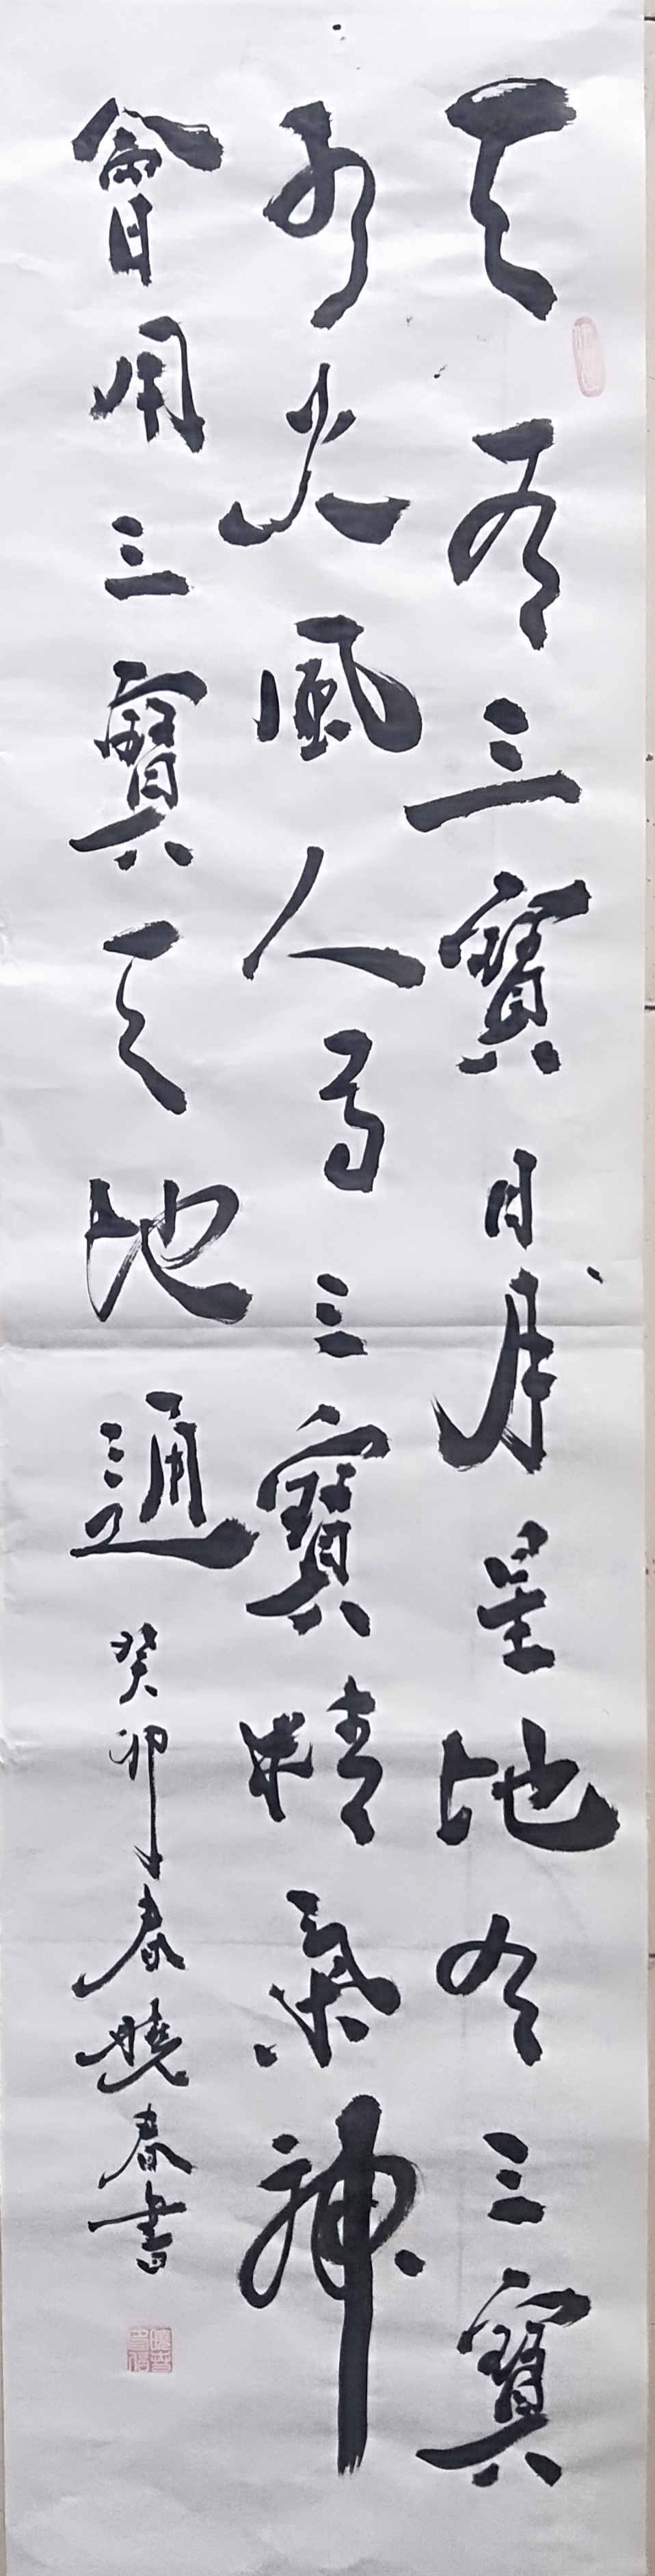 天有三寶日月星地有三寶
水火風人有三寶精氣神
會用三寶天地通
癸卯春曉春書